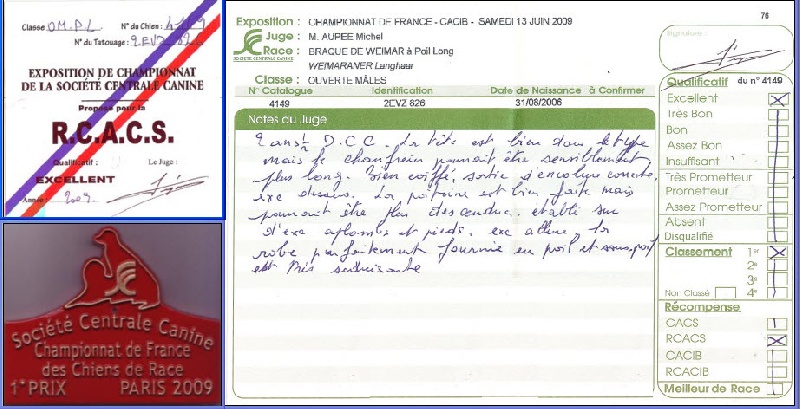 Classe: OM.PL N° du Chien: 4149
N° du Tatouage: 2EVZ 82
EXPOSITION DE CHAMPIONNAT
DE LA SOCIÉTÉ CENTRALE CANINE
Proposé pour la
R.C.A.C.S.
Qualificatif: Le Juge:
EXCELLENT
Année: 2009
Société Centrale Canine
Championnat de France
des Chiens de Race
1° PRIX PARIS 2009
Exposition : CHAMPIONNAT DE FRANCE - CACIB - SAMEDI 13 JUIN 2009
Juge : M. AUPEE Michel
Race : BRAQUE DE WEIMAR à Poil Long
WEIMARANER Langhaar
SOCIÉTÉ CENTRALE CANINE
Classe : OUVERTE MÂLES
N° Catalogue Identification Date de Naissance à Confirmer
4149 2EVZ 826 31/08/2006
Notes du Juge
2 ans 1/2 D.C.C. La tête est bien dans le type
mais le chanfrein pourrait être sensiblement
plus long. Bien coiffé, sortie d'encolure correcte,
exc dessus. La poitrine est bien faite mais
pourrait être plus descendue. établi sur
d'exc aplombs et pieds. exc allure, la
robe parfaitement fournie en poil et
est très satisfaisante
76
Signature :
Qualificatif du n° 4149
Excellent
Très Bon
Bon
Assez Bon
Insuffisant
Très Prometteur
Prometteur
Assez Prometteur
Absent
Disqualifié
Classement 1er
2e
3e
Non Classé 4e
Récompense
CACS
RCACS
CACIB
RCACIB
Meilleur de Race